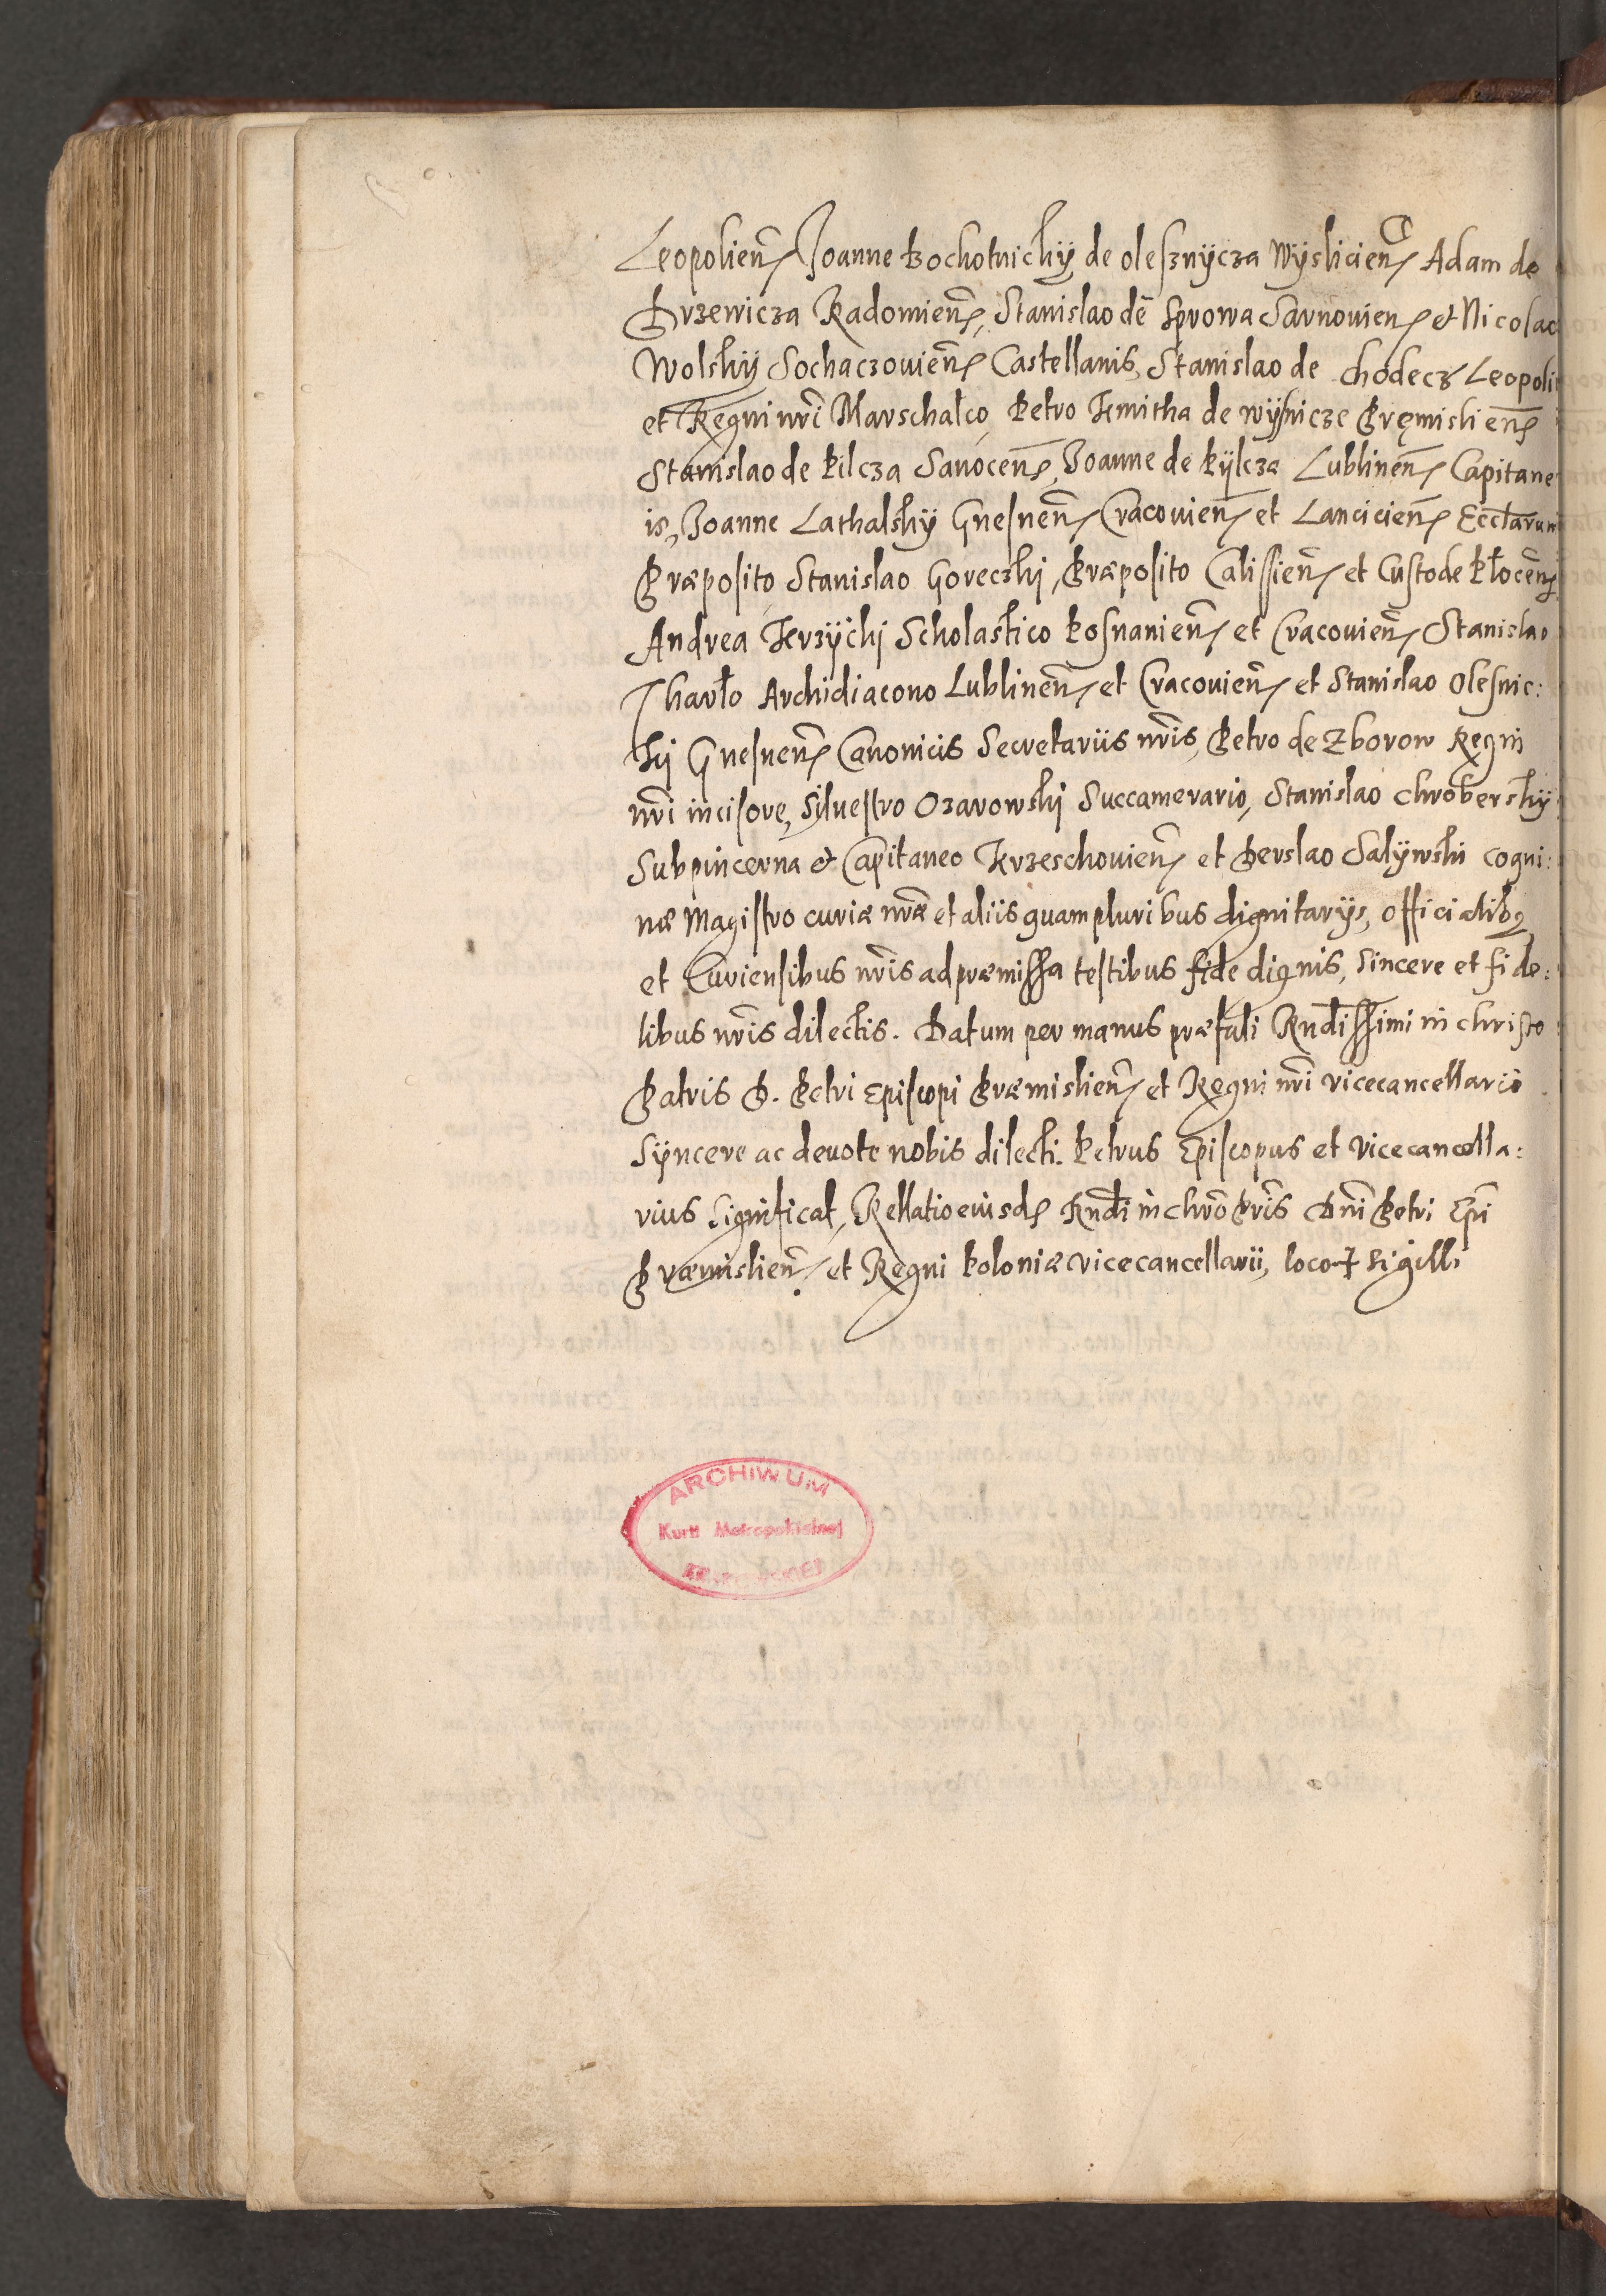 Leopolien̄ Joanne Bochotnichÿ de olesznÿcza Wÿslicien̄ Adam de
Drzewicza Radomien̄, Stanislao dē Sprowa Sarnovien et Nicolao
Wolskÿ Sochaczouien̄ Castellanis, Stanislao de chodecz Leopoli
et Regni nr̄i Marschalco, Petro Kmitha de wÿsnicze Pręmislien̄
Stanislao de Pilcza Sanocen̄, Joanne de Pÿlcza Lublinen̄ Capitane
is, Joanne Lathalskÿ Gnesnen̄ Cracouien̄ et Lancicien̄ Eccl̄arum
Præposito Stanislao Goreczki, Præposito Calissien̄ et Custode Plocen̄
Andrea Krzÿcki Scholastico Posnanien̄ et Cracouien̄ Stanislao
Tharło Archidiacono Lublinen̄ et Cracouien̄ et Stanislao Olesnic:
kij Gnesnen̄ Canonicis Secretariis nr̄is, Petro de Zborow Regni
nr̄i incisore, Siluestro Ozarowski Succamerario, Stanislao chroberskÿ
Subpincerna et Capitaneo Krzeschouien̄ et Derslao Salÿwski cogni:
næ Magistro curiæ nr̄æ et aliis quampluribus dignitarÿs, officialibꝫ
et Curiensibus nr̄is ad præmissa testibus fide dignis, sincere et fide:
libus nr̄is dilectis. Datum per manus præfati Rnd̄issimi in christo
Patris D. Petri Episcopi Præmislien̄ et Regni nr̄i vicecancellario
Sÿncere ac deuote nobis dilecti. Petrus Episcopus et vicecancella:
rius significat, Rellatio eiusdꝫ Rnd̄i in chr̄o Pr̄is Dn̄i Petri Ep̄i
Præmislien̄ et Regni Poloniæ vicecancellarii, loco ✝ sigilli
ARCHIWUM
Kurii Metropolitalnej